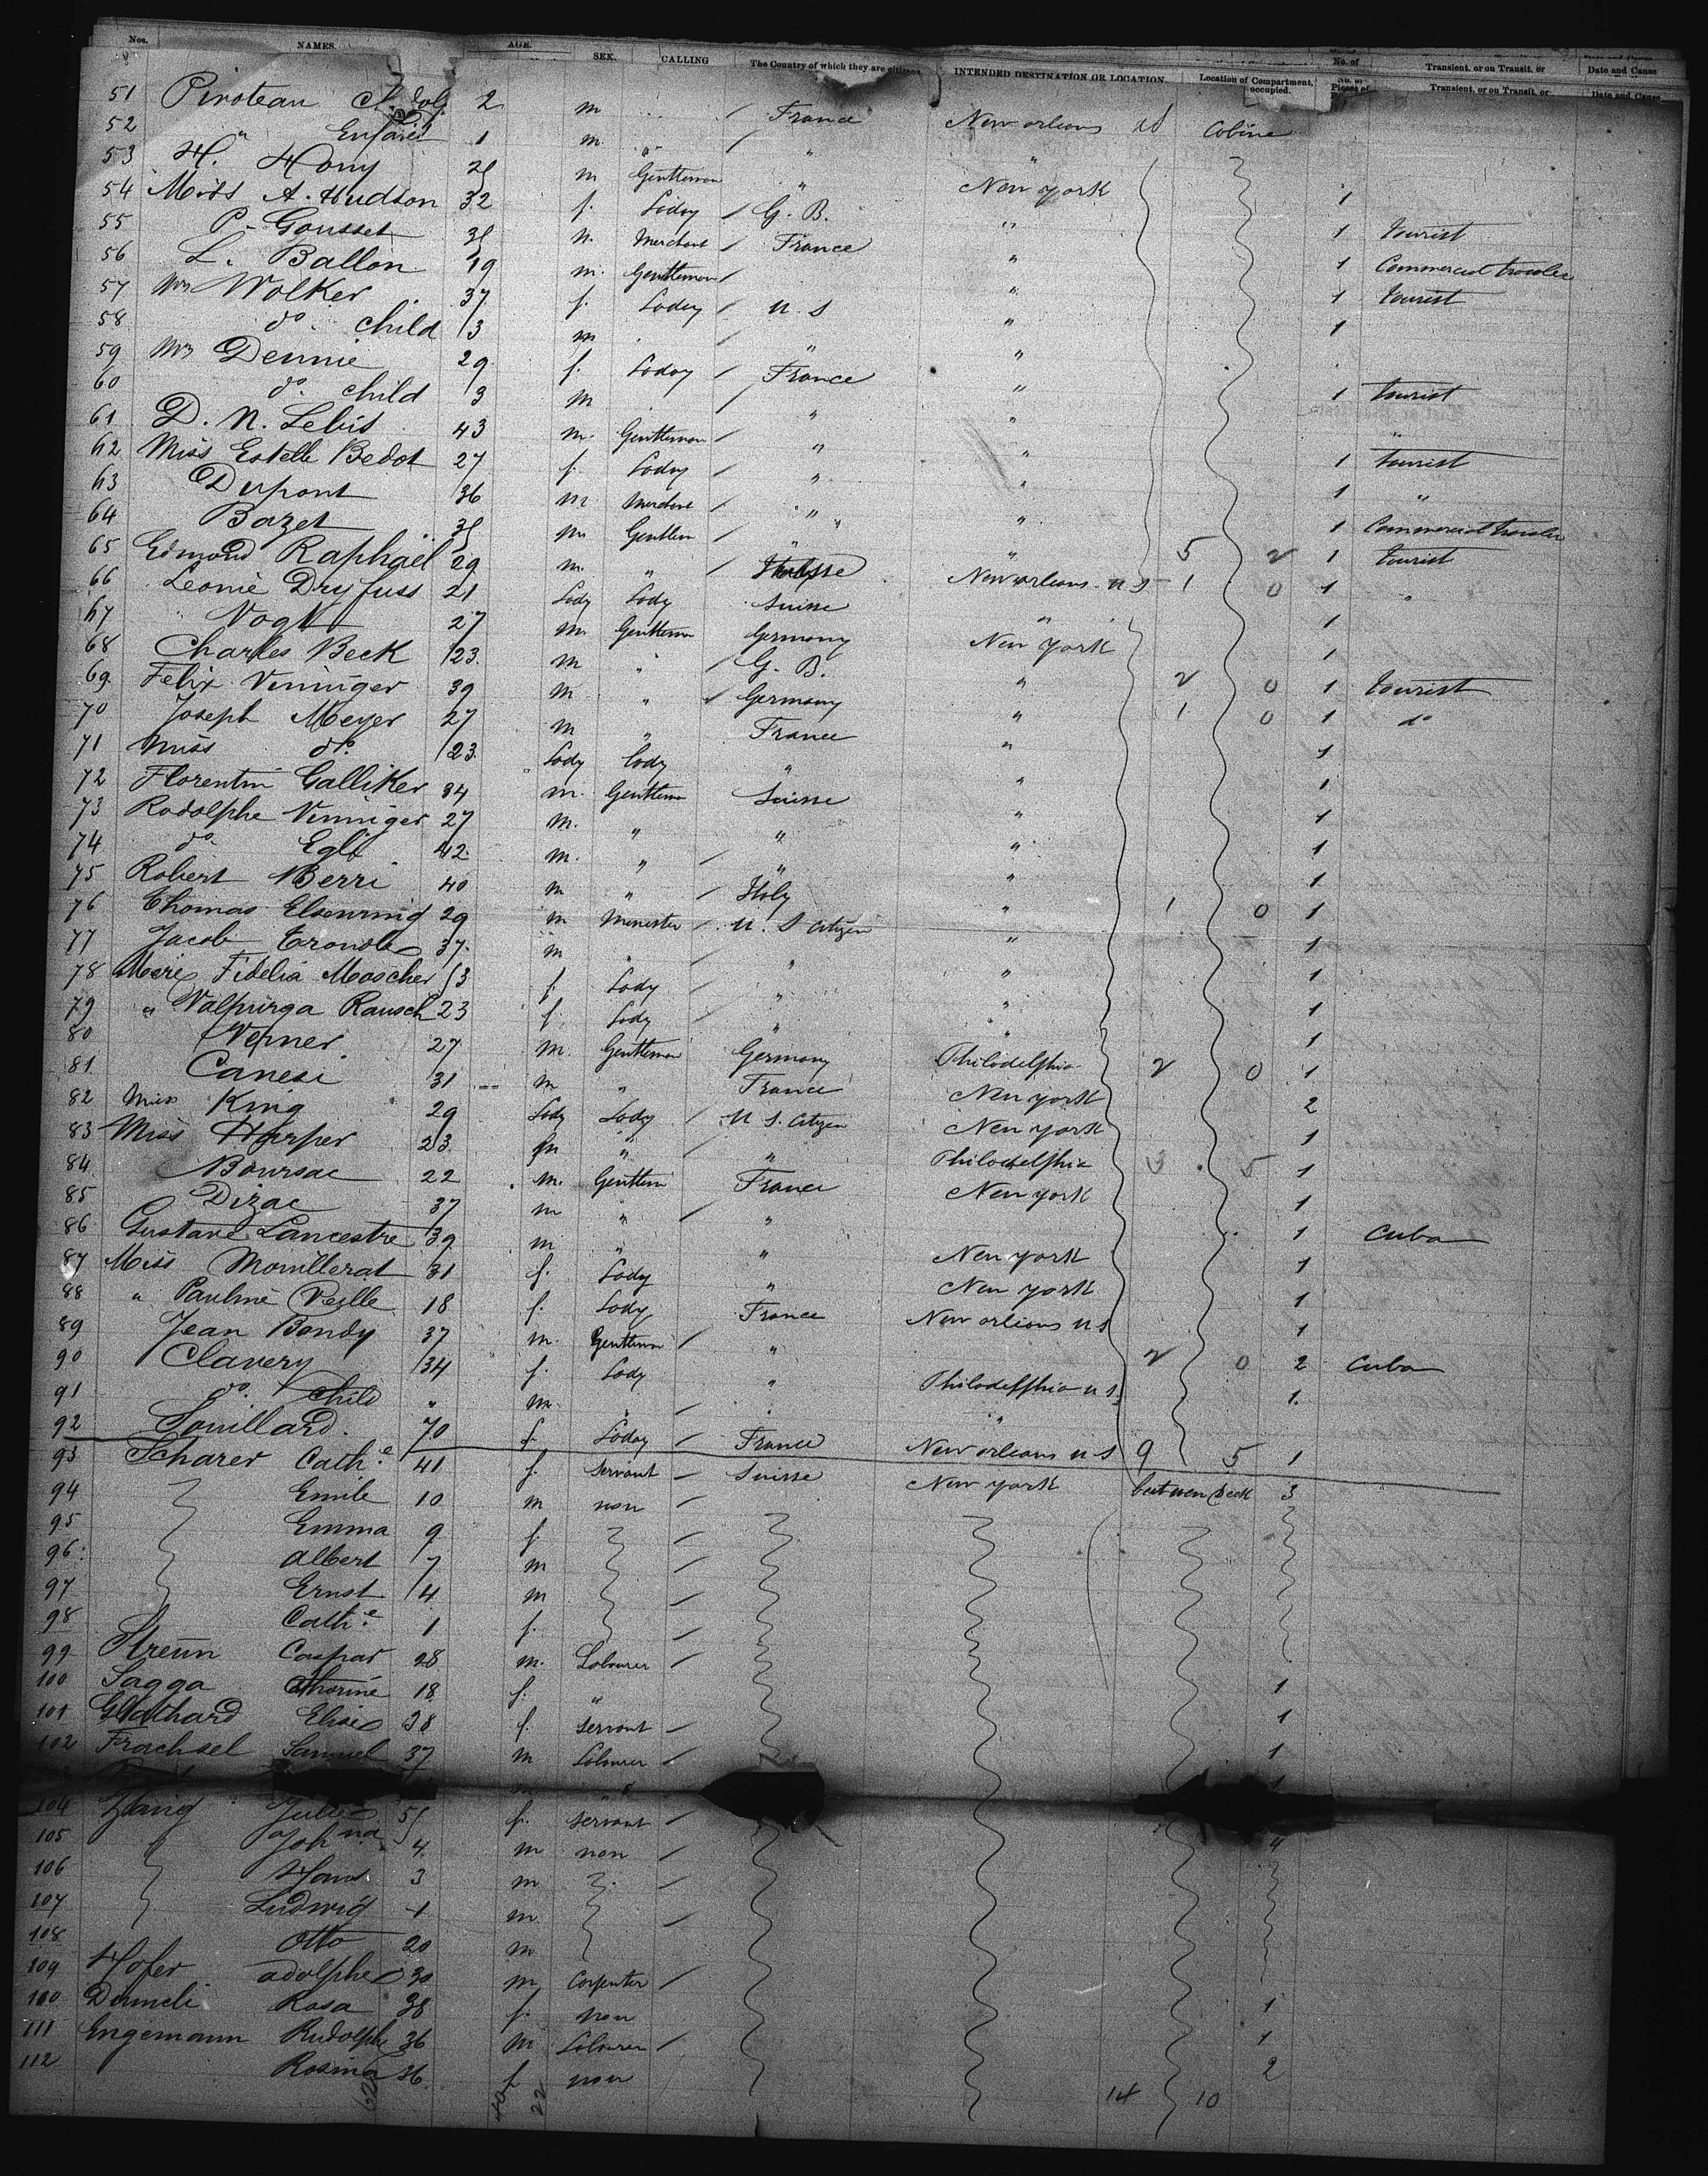 Nos. NAMES. AGE. SEX. CALLING The Country of which they are citizens. INTENDED DESTINATION OR LOCATION. Location of Compartment, occupied. No. of Pieces of Transient, or on Transit, or Date and Cause
51 Piroteau 2 m / France New orleans Cabine
52 " Enfant 1 m " / "
53 H. Hony m Gentleman " New york
54 Miss A. Hudson 32 f. Lady / G. B. " 1
55 P. Gousset m. Merchant / France " 1 tourist
56 L. Ballon 19 m. Gentleman / " 1 Commercial traveler
57 Mrs Walker 37 f. Lady / U. S " 1 tourist
58 do child 3 m / " " 1
59 Mrs Dennie 29 f. Lady / France "
60 do child 3 m / " " 1 tourist
61 D. N. Lebis 43 m. Gentleman / " " "
62 Miss Estelle Bedot 27 f. Lady / " " 1 tourist
63 Dupont 36 m Merchant / " " 1 "
64 Bazet m Gentlem / " " 1 Commercial traveler
65 Edmond Raphaël 29 m. " / " 5 2 1 tourist
66 Leonie Dryfuss 21 Lady Lady Suisse New orleans U S 1 0 1 "
67 Vogt 27 m. Gentleman Germany " 1
68 Charles Beck 23 m " / G. B. New york 1
69 Felix Venninger 39 m " / Germany " 2 0 1 tourist
70 Joseph Meyer 27 m " France " 1 0 1 do
71 Miss do 23 Lady Lady " " 1
72 Florentin Galliker 34 m. Gentleman Suisse " 1
73 Rodolphe Venninger 27 m. " " " 1
74 do Egli 42 m. " / " " 1
75 Robert Berri 40 m " / Italy " 1
76 Thomas 29 m Minister / U. S Citizen " 1 0 1
77 Jacob 37 m " / " " 1
78 Mere Fidelia Mooscher 53 f. Lady / " " 1
79 " Valpurga Rausch 23 f. Lady / " " 1
80 Verner 27 m. Gentleman Germany " 1
81 Canesi 31 m " France Philadelphia 2 0 1
82 Miss King 29 Lady Lady / U S. Citizen New york 2
83 Miss Harper 23 " / " New york 1
84 Boursac 22 m. Gentlem France Philadelphia 3 5 1
85 Dizac 37 m " / " New york 1
86 Gustave Lancestre 39 m " " 1 Cuba
87 Miss Mouillerat 31 f. Lady " New york 1
88 " Pauline Veille 18 f. Lady France New york 1
89 Jean Bondy 37 m. Gentleman / " New orleans U S 1
90 Clavery 34 f. Lady " 2 0 2 Cuba
91 do. Child " m. " / " Philadelphia U S. 1.
92 Souillard. 70 f Lady / France " 
93 Scharer Cathe 41 f. Servant / Suisse New orleans U S 9 5 1
94 Emile 10 m non / New york between deck 3
95 Emma 9 f. /
96 Albert 7 m /
97 Ernst 4 m /
98 Cathe 1 f. /
99 Streun Caspar 28 m. Labourer /
100 Sagga 18 f. " 1
101 Glathard Elise 28 f. Servant / 1
102 Frachsel Samuel 37 m Labourer / 1
104 Julie f. Servant /
105 4 m non / 4
106 Hans 3 m /
107 Ludwig 1 m. /
108 Otto 20 m
109 Hofer Adolphe 30 m Carpenter /
110 Dumeli Rosa 38 f. non 1
111 Engemann Rudolph 36 m Labourer / 1
112 Rosina 36 f non 2
14 10